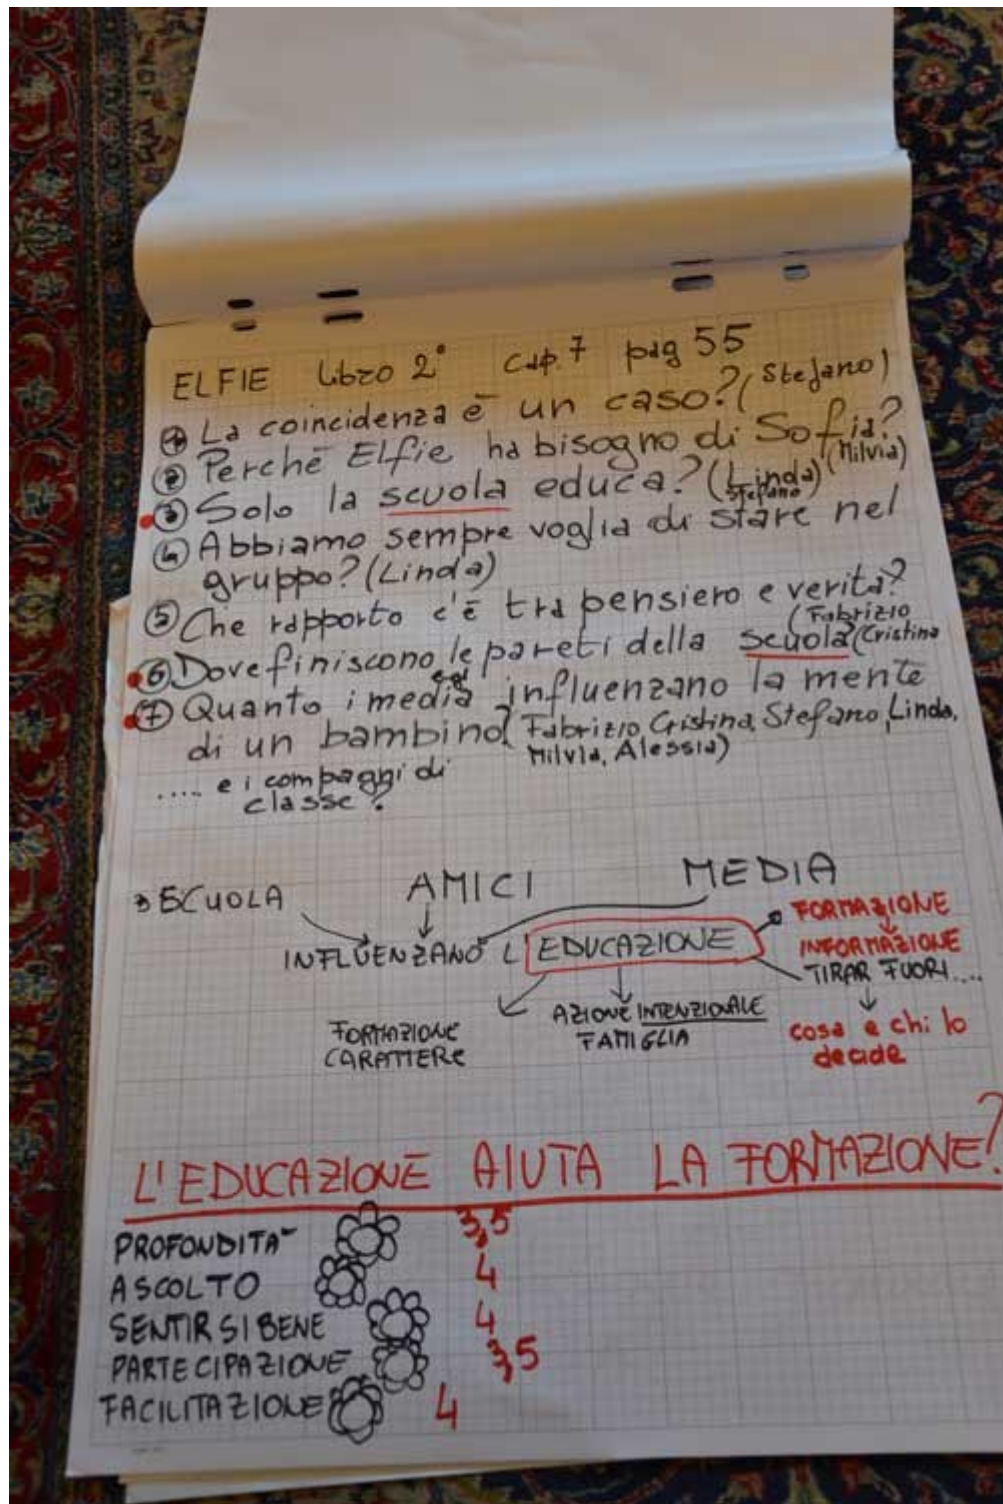 ELFIE libro 2° cap. 7 pag 55
① La coincidenza è un caso? (Stefano)
② Perchè Elfie ha bisogno di Sofia? (Milvia)
③ Solo la scuola educa? (Linda) Stefano
④ Abbiamo sempre voglia di stare nel
gruppo? (Linda)
⑤ Che rapporto c'è tra pensiero e verità?
(Fabrizio
⑥ Dove finiscono le pareti della scuola (Cristina
⑦ Quanto i media influenzano la mente
di un bambino? Fabrizio, Cristina, Stefano, Linda,
Milvia, Alessia)
..... e i compagni di
classe?
SCUOLA AMICI MEDIA
INFLUENZANO L'EDUCAZIONE
FORMAZIONE
INFORMAZIONE
TIRAR FUORI....
FORMAZIONE
CARATTERE
AZIONE INTENZIONALE
FAMIGLIA
cosa e chi lo
decide
L'EDUCAZIONE AIUTA LA FORMAZIONE?
PROFONDITA' 3,5
ASCOLTO 4
SENTIRSI BENE 4
PARTECIPAZIONE 3,5
FACILITAZIONE 4